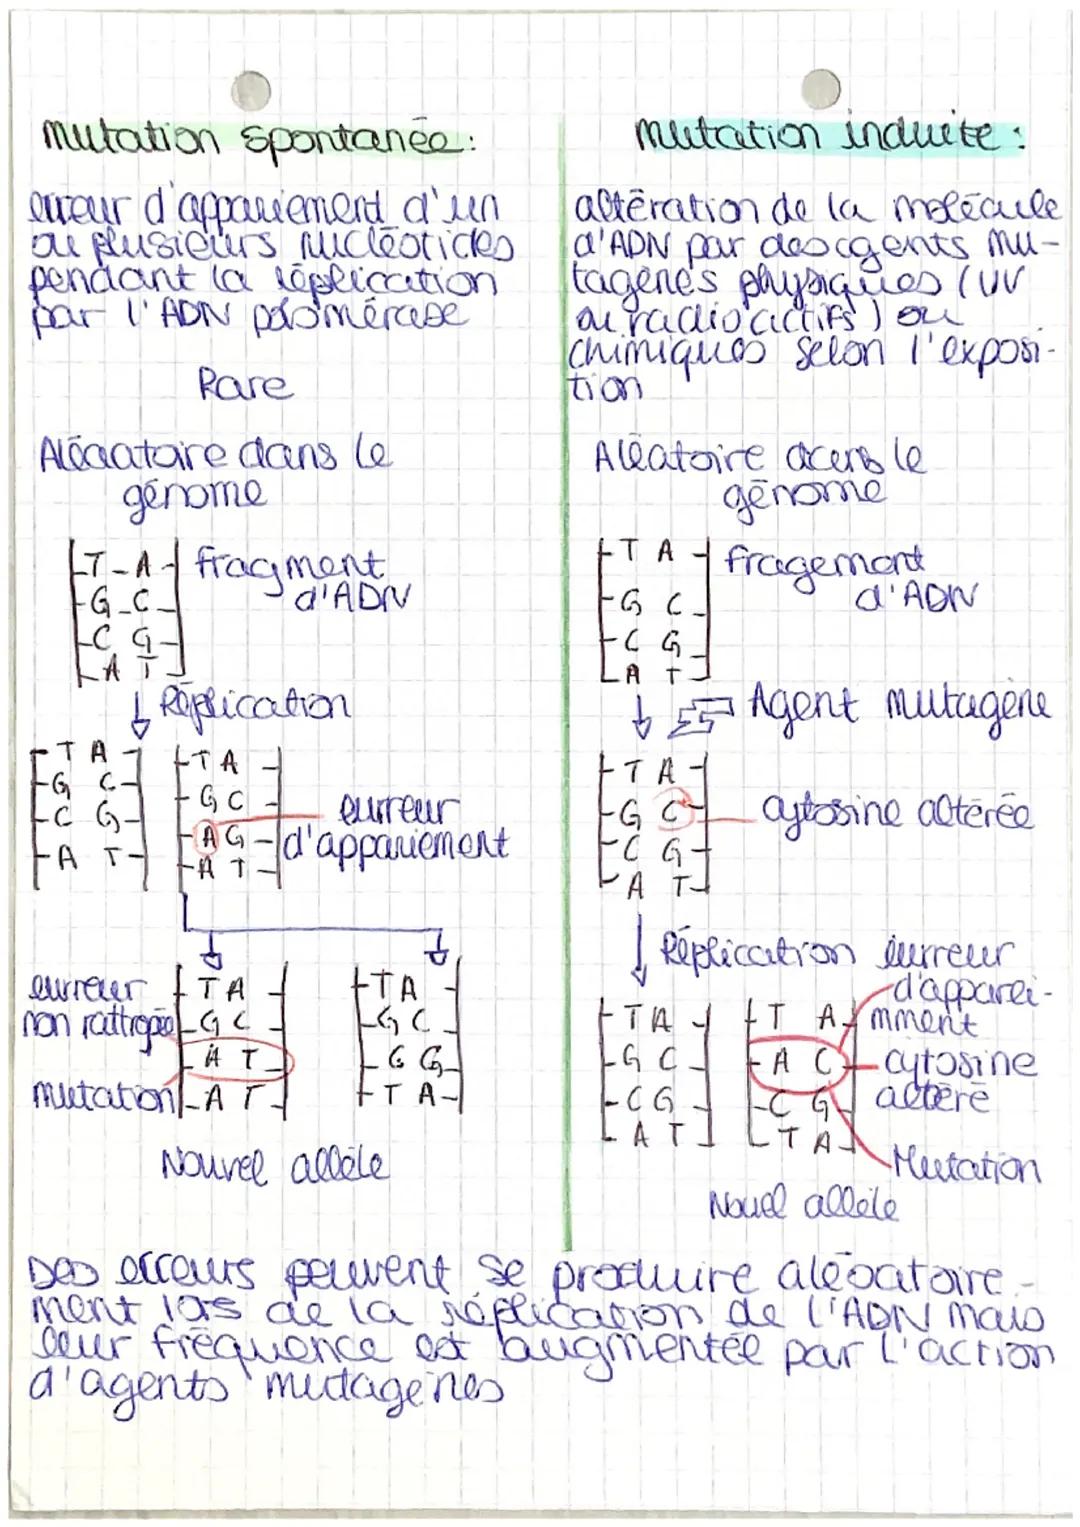 Mutation spontanée :
erreur d'appariement d'un
ou plusieurs nucléotides
pendant la réplication
par l'ADN polomérase
Rare
Aléaatoire dans le
génome
T - A
G - C
C G
A T
fragment
d'ADN
Réplication
T A
G C
C G
A T
T A
G C
A G
A T
eurreur
d'appariement
eurreur
non rattropée
mutation
T A
G C
A T
A T
T A
G C
G G
T A
Nouvel allèle
Mutation induite :
altération de la molécule
d'ADN par des agents mu-
tagènes physiques (UV
ou radioactifs) ou
chimiques selon l'exposi-
tion
Aléatoire dans le
génome
T A
G C
C G
A T
fragement
d'ADN
Agent mutagène
T A
G C
C G
A T
cytosine altérée
Réplication
eurreur
d'apparei-
mment
T A
G C
C G
A T
T A
A C
C G
T A
cytosine
altéré
Mutation
Nouel allèle
Des erreurs peuvent se produire aléoatoire-
ment lors de la réplication de l'ADN mais
leur fréquence est augmentée par l'action
d'agents mutagènes